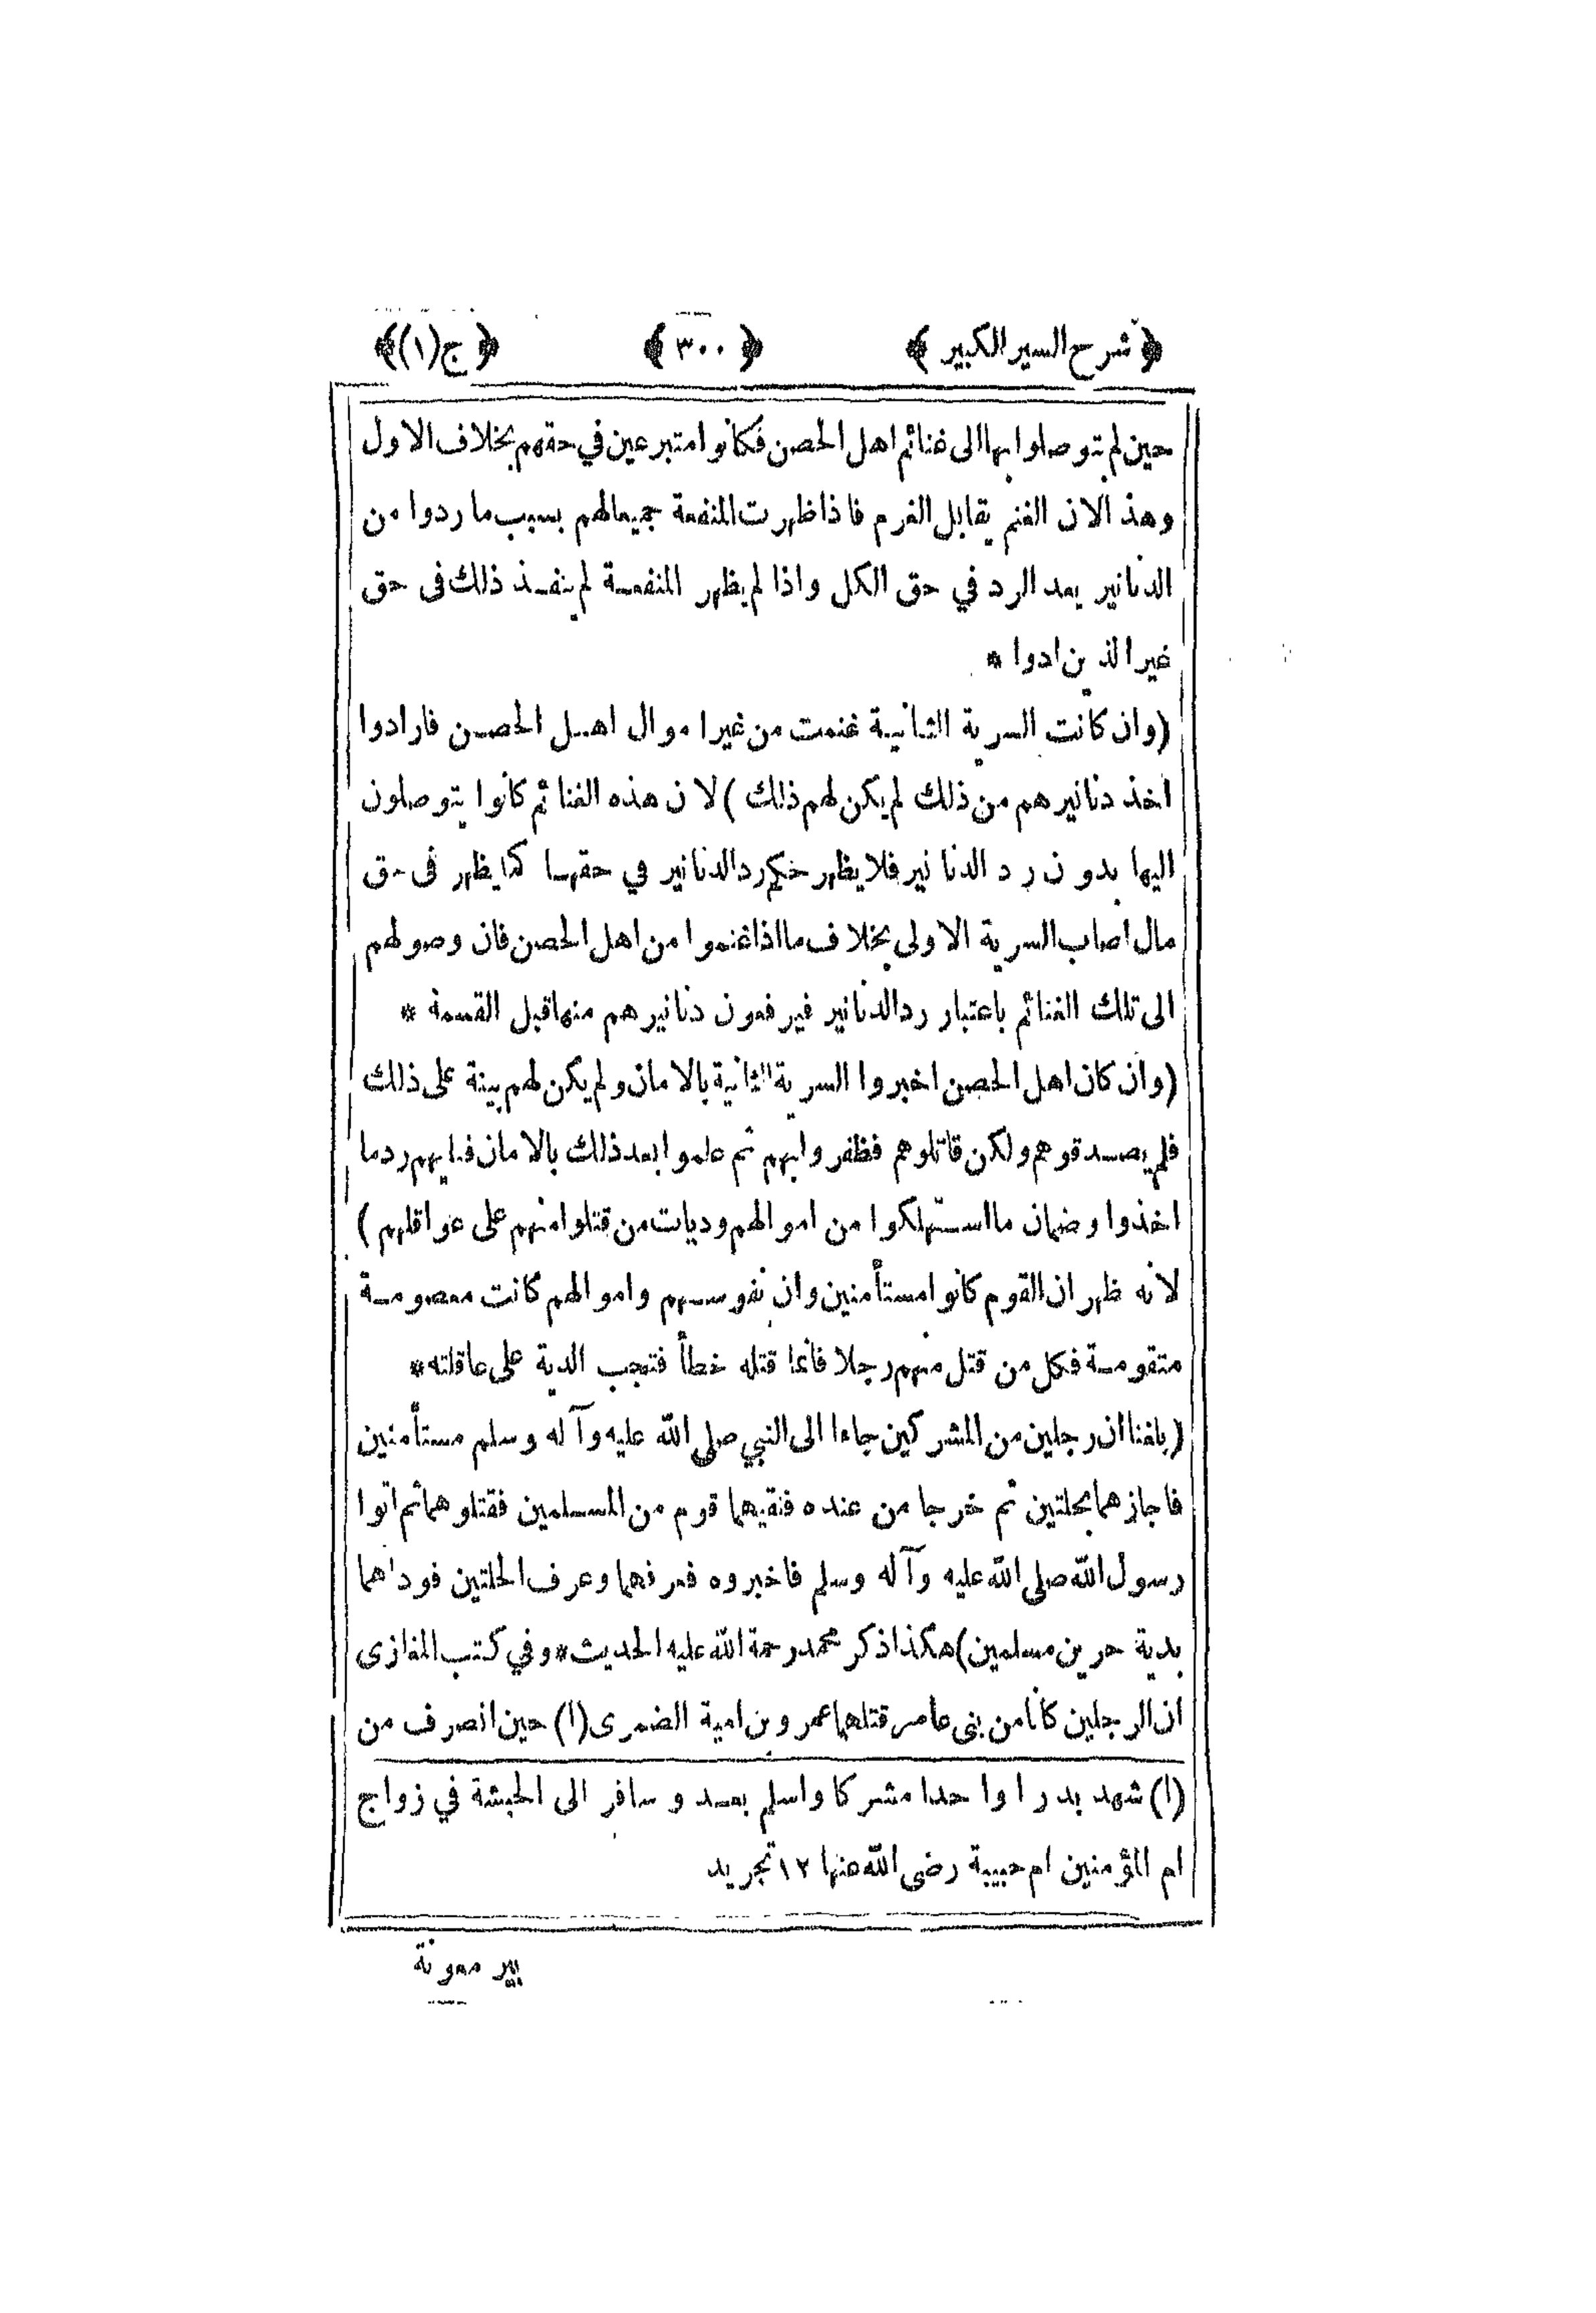 ﴿ شرح السير الكبير ﴾ ﴿ ٣٠٠ ﴾ ﴿ ج (١) ﴾
حين لم يتوصلوا بها الى غنائم اهل الحصن فكانوا متبرعين في حقهم بخلاف الاول
وهذا لان الغنم يقابل الغرم فاذا ظهرت المنفعة جميعا لهم بسبب ما ردوا من
الدنانير يعد الرد في حق الكل واذا لم يظهر المنفعة لم ينفذ ذلك فى حق
غير الذين ادوا *
(وان كانت السرية الثانية غنمت من غير اموال اهل الحصن فارادوا
اخذ دنانيرهم من ذلك لم يكن لهم ذلك ) لان هذه الغنائم كانوا يتوصلون
اليها بدون رد الدنانير فلا يظهر حكم رد الدنانير في حقها كما يظهر فى حق
مال اصاب السرية الاولى بخلاف ما اذا غنموا من اهل الحصن فان وصولهم
الى تلك الغنائم باعتبار رد الدنانير فيرفعون دنانيرهم منها قبل القسمة *
(وان كان اهل الحصن اخبروا السرية الثانية بالامان ولم يكن لهم بينة على ذلك
فلم يصدقوهم ولكن قاتلوهم فظفروا بهم ثم علموا بعد ذلك بالامان فعليهم رد ما
اخذوا وضمان ما استهلكوا من اموالهم وديات من قتلوا منهم على عواقلهم )
لانه ظهر ان القوم كانوا مستأمنين وان نفوسهم واموالهم كانت معصومة
متقومة فكل من قتل منهم رجلا فانما قتله خطأ فتجب الدية على عاقلته *
(بلغنا ان رجلين من المشركين جاءا الى النبي صلى الله عليه وآله وسلم مستأمنين
فاجازهما بحلتين ثم خرجا من عنده فلقيهما قوم من المسلمين فقتلوهما ثم اتوا
رسول الله صلى الله عليه وآله وسلم فاخبروه فعرفهما وعرف الحلتين فوداهما
بدية حرين مسلمين) هكذا ذكر محمد رحمة الله عليه الحديث * وفي كتب المغازى
ان الرجلين كانا من بنى عامر قتلهما عمرو بن امية الضمرى (١) حين انصرف من
(١) شهد بدرا واحدا مشركا واسلم بعد و سافر الى الحبشة في زواج
ام المؤمنين ام حبيبة رضى الله عنها ١٢ تجريد
بير معونة